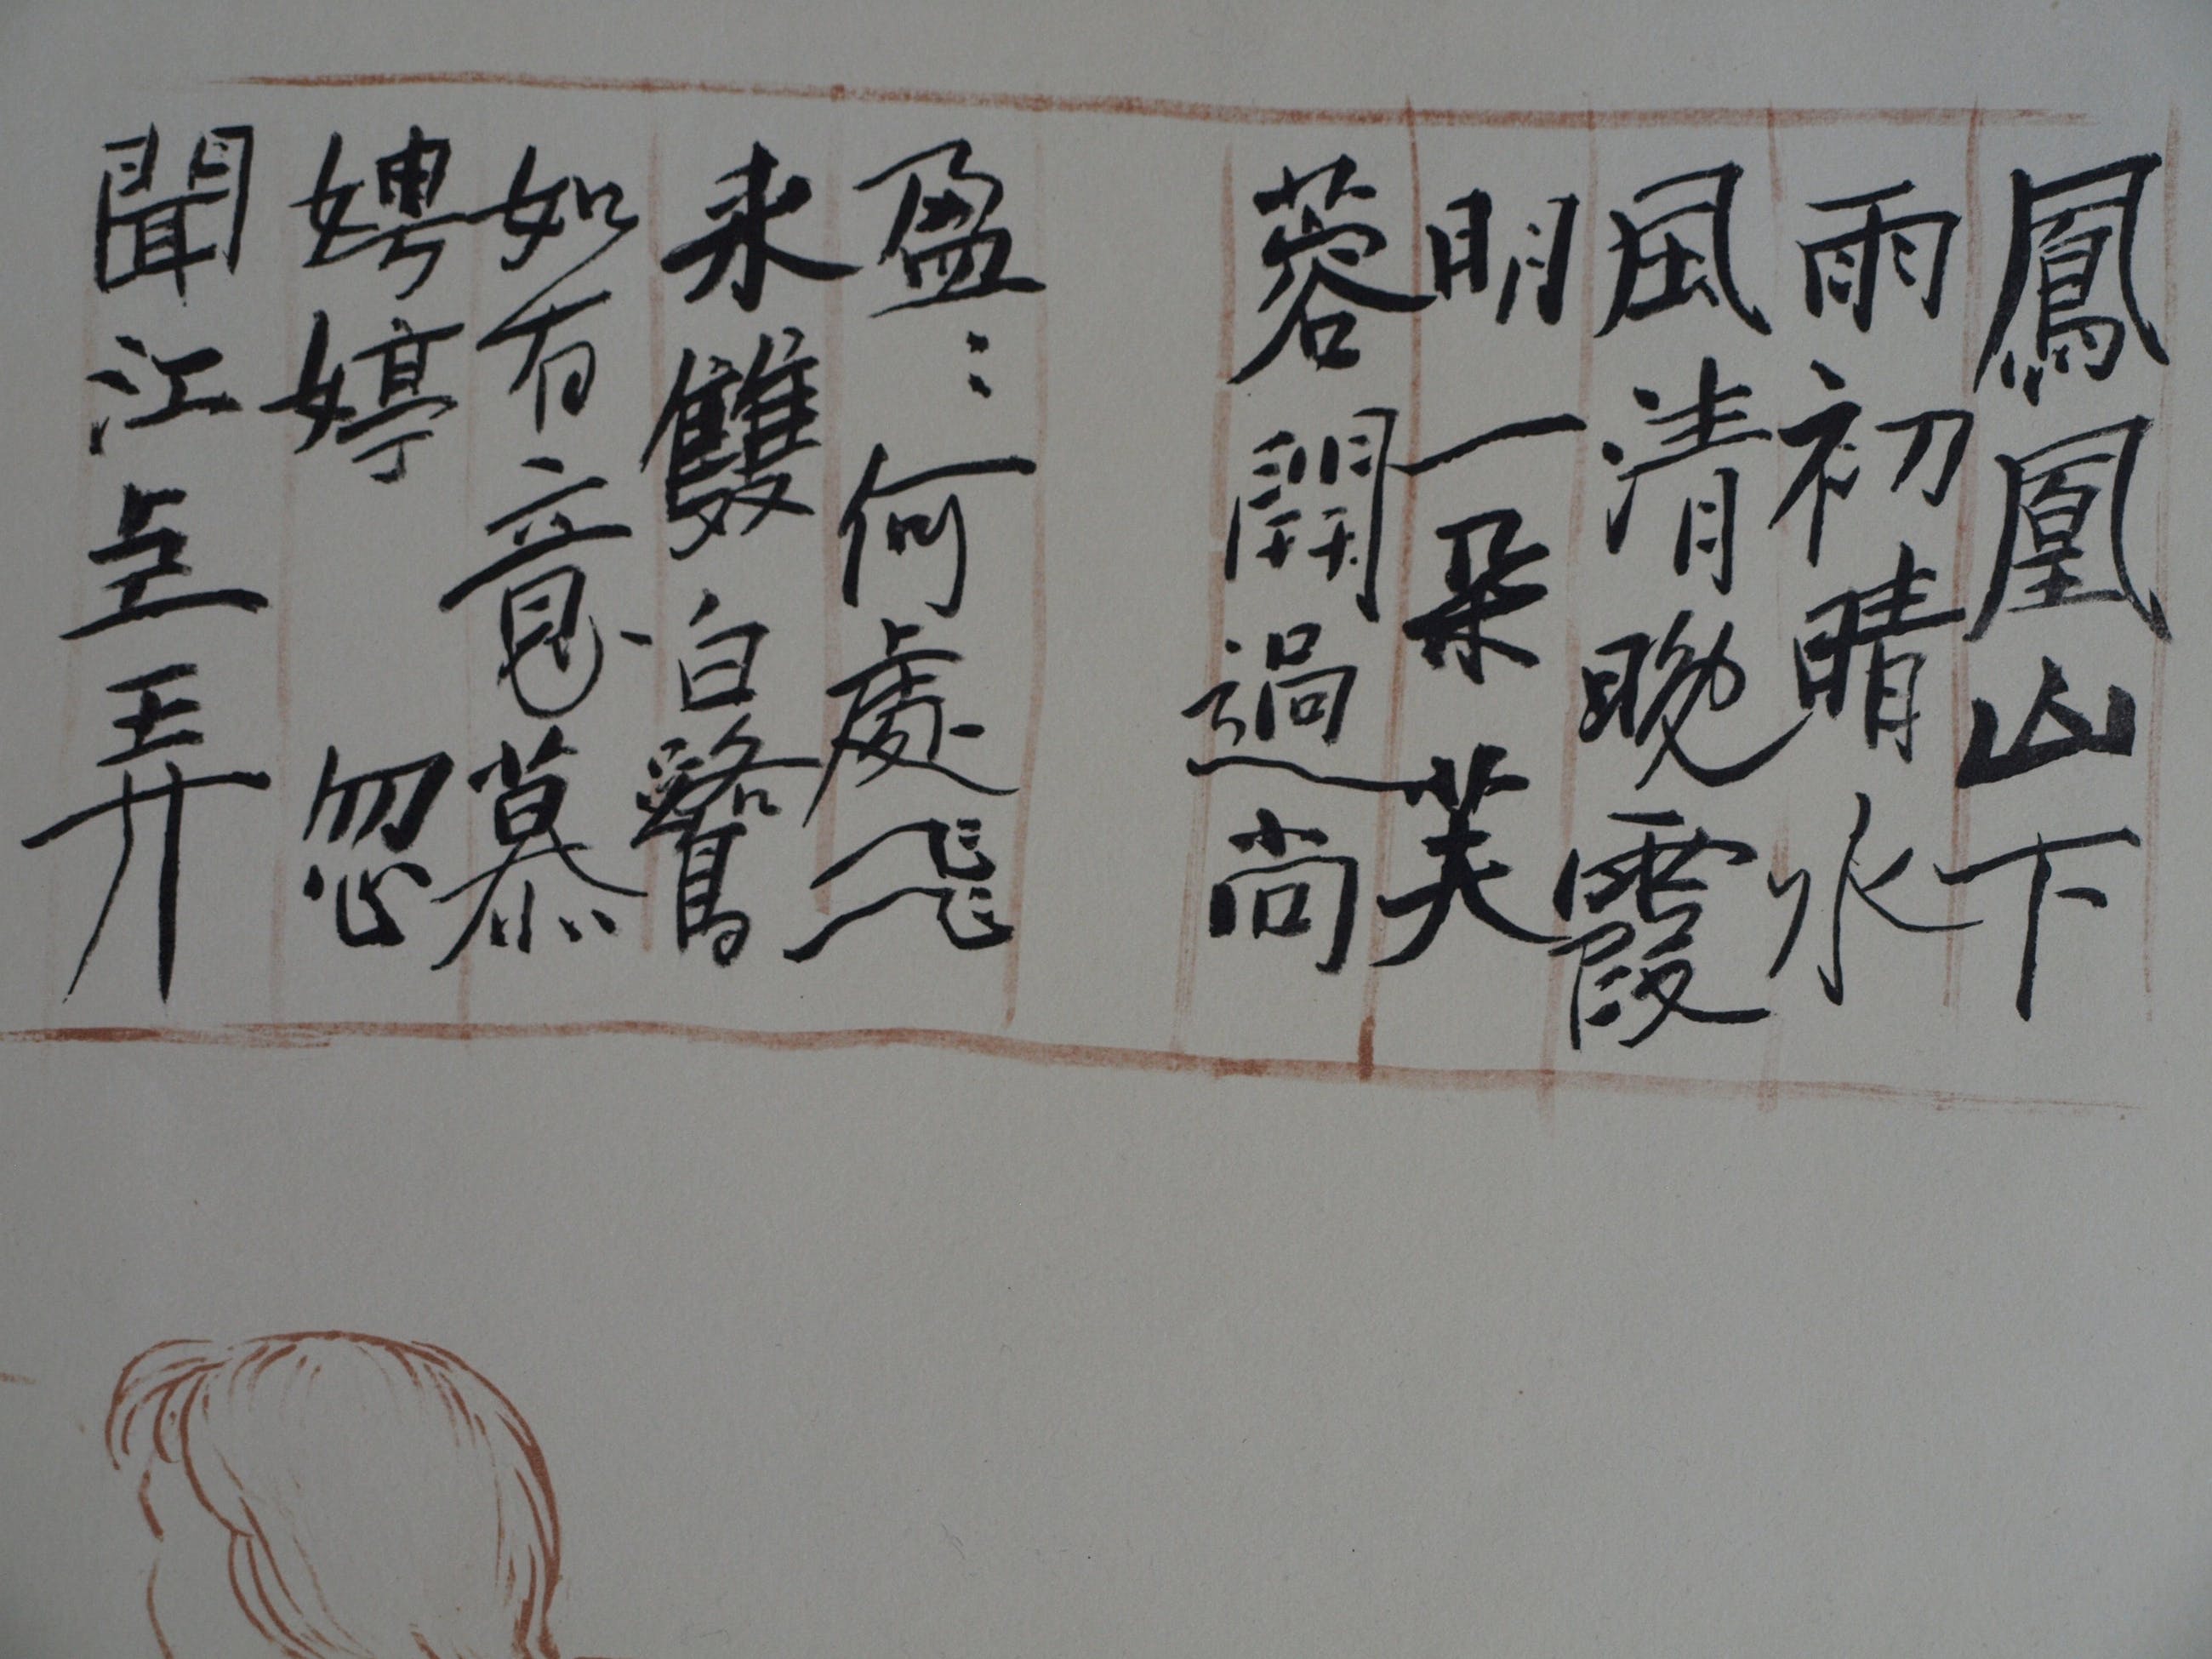 鳳凰山下
雨初晴水
風清晚霞
明一朵芙
蓉開過尚
盈：何處飛
来雙白鷺
如有意慕
娉婷 忽
聞江上弄